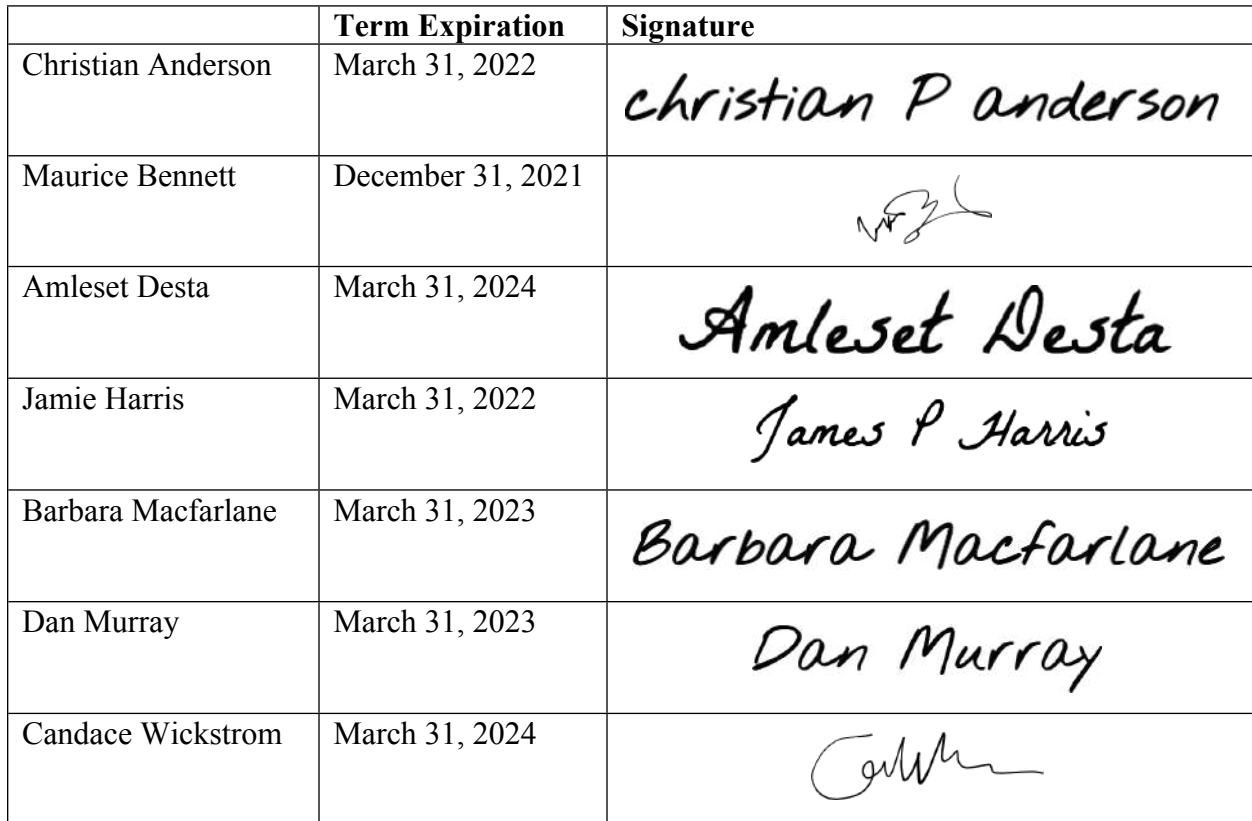 Term Expiration Signature
Christian Anderson March 31, 2022 christian P anderson
Maurice Bennett December 31, 2021
Amleset Desta March 31, 2024 Amleset Desta
Jamie Harris March 31, 2022 James P Harris
Barbara Macfarlane March 31, 2023 Barbara Macfarlane
Dan Murray March 31, 2023 Dan Murray
Candace Wickstrom March 31, 2024